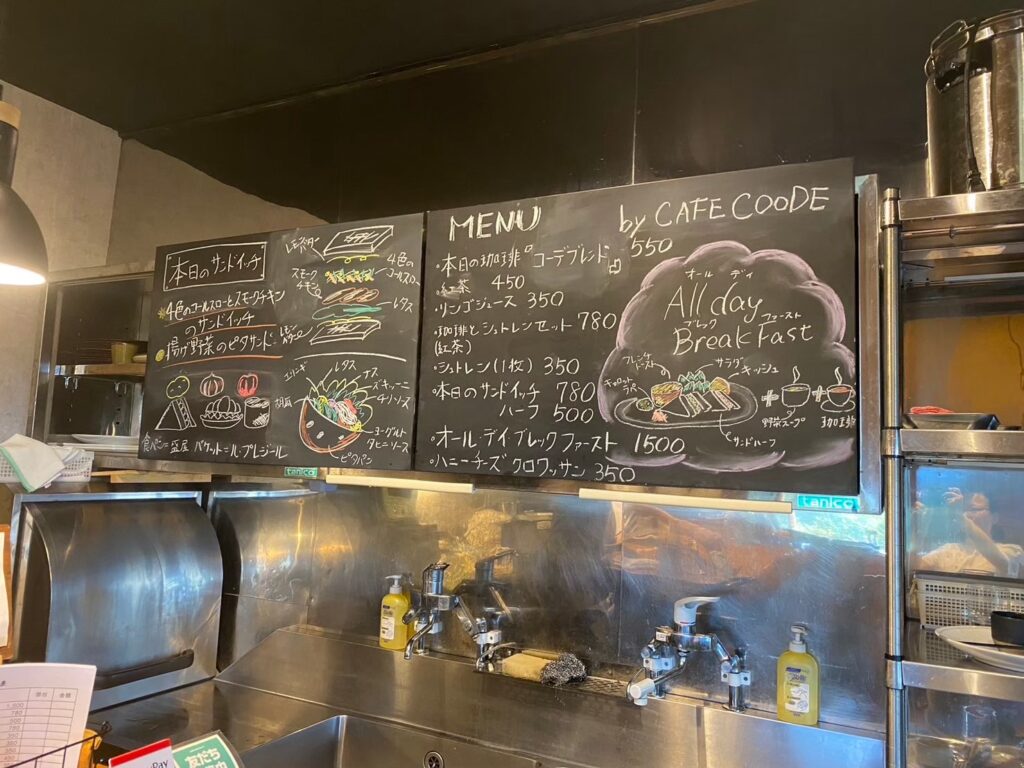 本日のサンドイッチ
4色のコールスローとスモークチキン
のサンドイッチ
揚げ野菜のピタサンド
レモスター
4色の
コールスロー
スモーク
チキン
レタス
エリンギ
レタス
ナス
ズッキーニ
チリソース
ヨーグルト
タヒニソース
ピタパン
食パン=盛屋 バケット=ル・プレジール
MENU
by CAFE COODE
・本日の珈琲『コーデブレンド』 550
・紅茶 450
・リンゴジュース 350
・珈琲とシュトレンセット 780
(紅茶)
・シュトレン(1枚) 350
・本日のサンドイッチ 780
ハーフ 500
・オールデイブレックファースト 1500
・ハニーチーズクロワッサン 350
オール デイ
All day
ブレック ファースト
BreakFast
フレンチ
トースト
サラダ
キッシュ
キャロット
ラペ
サンドハーフ
野菜スープ
珈琲
tanico
tanico
友だち
Pay